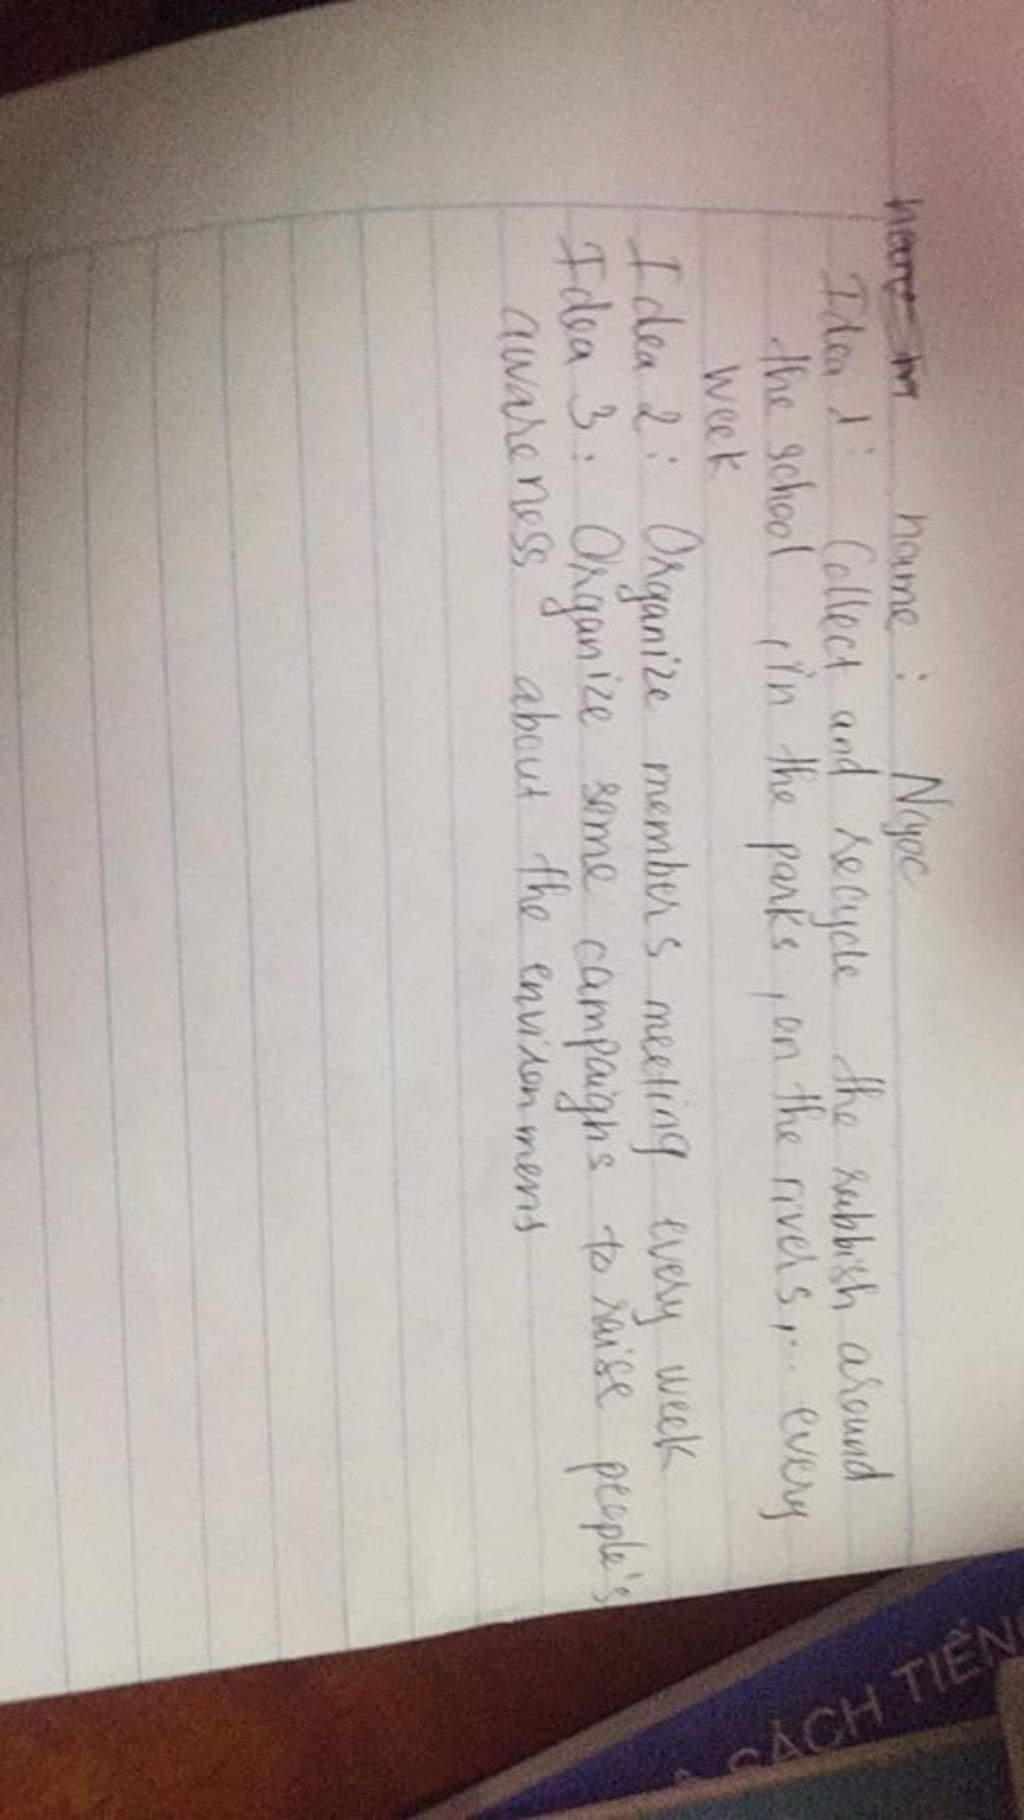 name : Ngoc
Idea 1 : Collect and recycle the rubbish around
the school , in the parks , on the rivers,... every
week
Idea 2 : Organize members meeting every week
Idea 3 : Organize some campaighs to raise people's
awareness about the environment
SÁCH TIẾNG